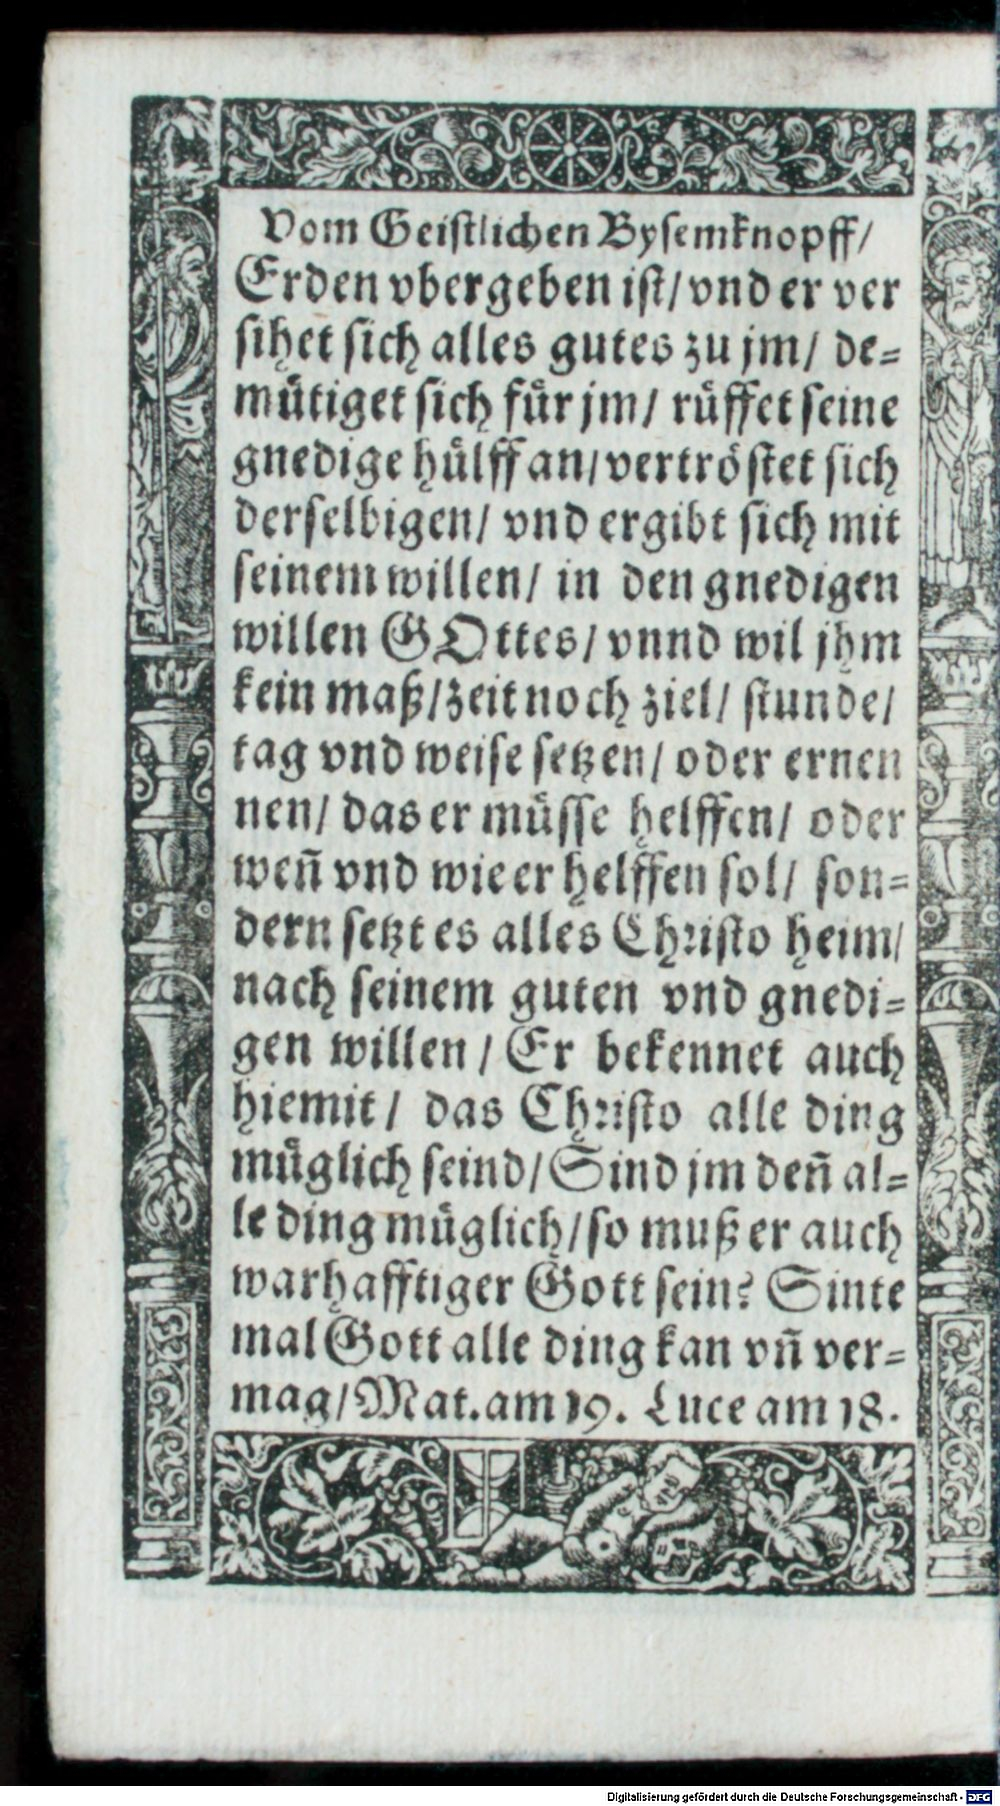 Vom Geistlichen Bysemknopff/
Erden vbergeben ist/ vnd er ver
sihet sich alles gutes zu jm/ de=
mütiget sich für jm/ rüffet seine
gnedige hülff an/ vertröstet sich
derselbigen/ vnd ergibt sich mit
seinem willen/ in den gnedigen
willen GOttes/ vnnd wil jhm
kein maß/ zeit noch ziel/ stunde/
tag vnd weise setzen/ oder ernen
nen/ das er müsse helffen/ oder
weñ vnd wie er helffen sol/ son=
dern setzt es alles Christo heim/
nach seinem guten vnd gnedi=
gen willen/ Er bekennet auch
hiemit/ das Christo alle ding
müglich seind/ Sind jm deñ al=
le ding müglich/ so muß er auch
warhafftiger Gott sein? Sinte
mal Gott alle ding kan vñ ver=
mag/ Mat. am 19. Luce am 18.
Digitalisierung gefördert durch die Deutsche Forschungsgemeinschaft - DFG